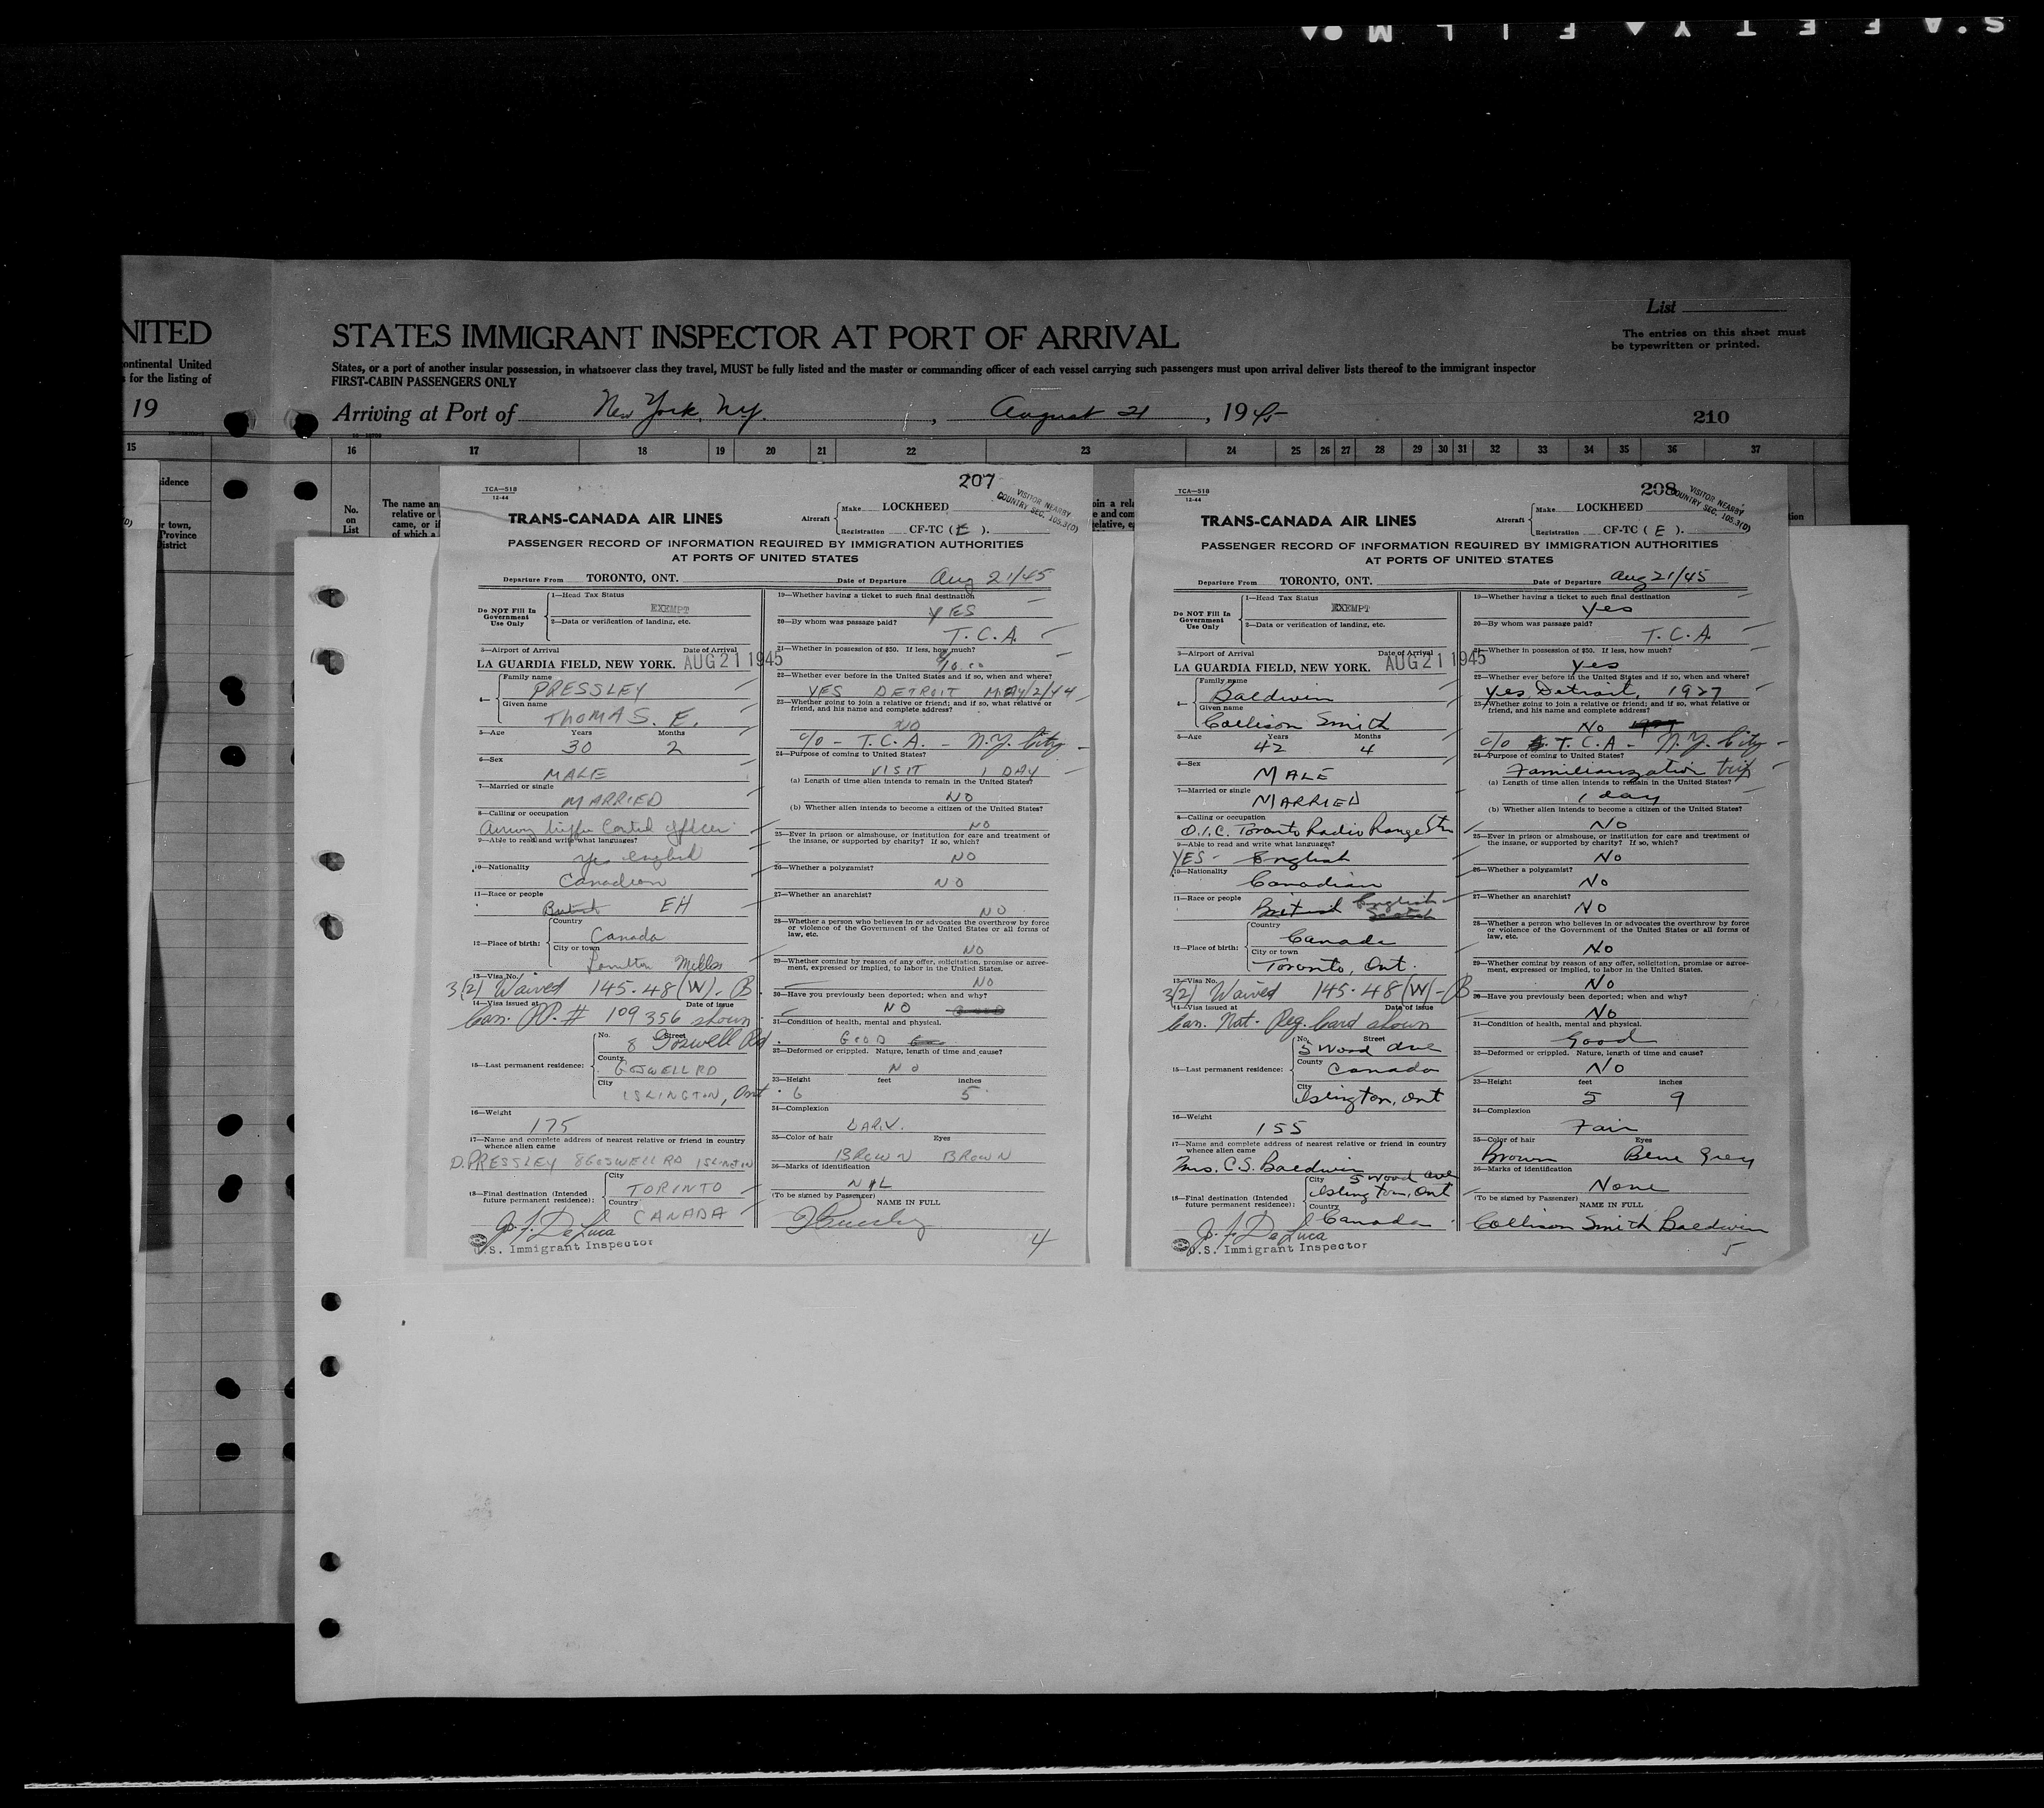 S·AFETY▲FILM●▲
NITED
ontinental United
s for the listing of
19
15
sidence
r town,
Province
District
List
The entries on this sheet must
be typewritten or printed.
STATES IMMIGRANT INSPECTOR AT PORT OF ARRIVAL
States, or a port of another insular possession, in whatsoever class they travel, MUST be fully listed and the master or commanding officer of each vessel carrying such passengers must upon arrival deliver lists thereof to the immigrant inspector
FIRST-CABIN PASSENGERS ONLY
Arriving at Port of New York, N.Y., August 21, 1945
210
16 17 18 19 20 21 22 23 24 25 26 27 28 29 30 31 32 33 34 35 36 37
No.
on
List
The name an
relative or
came, or if
of which a
TCA—518
12-44
207
VISITOR NEARBY
COUNTRY SEC. 105.3(D)
TRANS-CANADA AIR LINES
Aircraft
Make LOCKHEED
Registration CF-TC (E).
PASSENGER RECORD OF INFORMATION REQUIRED BY IMMIGRATION AUTHORITIES
AT PORTS OF UNITED STATES
Departure From TORONTO, ONT. Date of Departure Aug 21/45
Do NOT Fill In
Government
Use Only
1—Head Tax Status
EXEMPT
2—Data or verification of landing, etc.
3—Airport of Arrival Date of Arrival
LA GUARDIA FIELD, NEW YORK. AUG 21 1945
4—
Family name
PRESSLEY
Given name
THOMAS. E.
5—Age Years Months
30 2
6—Sex
MALE
7—Married or single
MARRIED
8—Calling or occupation
Airway traffic Control officer
9—Able to read and write what languages?
yes english
10—Nationality
Canadian
11—Race or people
British EH
12—Place of birth:
Country
Canada
City or town
Lambton Mills
13—Visa No.
3(2) Waived 145.48(W)-B
14—Visa issued at Date of issue
Can. PP. # 109356 shown
15—Last permanent residence:
No. Street
8 Goswell Rd
County
GOSWELL RD
City
ISLINGTON, Ont
16—Weight
175
17—Name and complete address of nearest relative or friend in country
whence alien came
D. PRESSLEY 8 GOSWELL RD ISLINGTON
18—Final destination (Intended
future permanent residence):
City
TORINTO
Country
CANADA
J. J. DeLuca
U.S. Immigrant Inspector
19—Whether having a ticket to such final destination
YES
20—By whom was passage paid?
T.C.A.
21—Whether in possession of $50. If less, how much?
10.00
22—Whether ever before in the United States and if so, when and where?
YES DETROIT MAY/2/44
23—Whether going to join a relative or friend; and if so, what relative or
friend, and his name and complete address?
NO
c/o - T.C.A. - N.Y. City
24—Purpose of coming to United States?
VISIT 1 DAY
(a) Length of time alien intends to remain in the United States?
NO
(b) Whether alien intends to become a citizen of the United States?
NO
25—Ever in prison or almshouse, or institution for care and treatment of
the insane, or supported by charity? If so, which?
NO
26—Whether a polygamist?
NO
27—Whether an anarchist?
NO
28—Whether a person who believes in or advocates the overthrow by force
or violence of the Government of the United States or all forms of
law, etc.
NO
29—Whether coming by reason of any offer, solicitation, promise or agree-
ment, expressed or implied, to labor in the United States.
NO
30—Have you previously been deported; when and why?
NO
31—Condition of health, mental and physical.
GOOD
32—Deformed or crippled. Nature, length of time and cause?
NO
33—Height feet inches
6 5
34—Complexion
DARK
35—Color of hair Eyes
BROWN BROWN
36—Marks of identification
NIL
(To be signed by Passenger) NAME IN FULL
4
oin a rela
e and com
relative, e
TCA—518
12-44
208
VISITOR NEARBY
COUNTRY SEC. 105.3(D)
TRANS-CANADA AIR LINES
Aircraft
Make LOCKHEED
Registration CF-TC (E).
PASSENGER RECORD OF INFORMATION REQUIRED BY IMMIGRATION AUTHORITIES
AT PORTS OF UNITED STATES
Departure From TORONTO, ONT. Date of Departure Aug 21/45
Do NOT Fill In
Government
Use Only
1—Head Tax Status
EXEMPT
2—Data or verification of landing, etc.
3—Airport of Arrival Date of Arrival
LA GUARDIA FIELD, NEW YORK. AUG 21 1945
4—
Family name
Baldwin
Given name
Collison Smith
5—Age Years Months
42 4
6—Sex
MALE
7—Married or single
MARRIED
8—Calling or occupation
O.I.C. Toronto Radio Range Stn
9—Able to read and write what languages?
YES - English
10—Nationality
Canadian
11—Race or people
British English Scotch
12—Place of birth:
Country
Canada
City or town
Toronto, Ont.
13—Visa No.
3(2) Waived 145.48(W)-B
14—Visa issued at Date of issue
Can. Nat. Reg. Card shown
15—Last permanent residence:
No. Street
5 Wood Ave
County
Canada
City
Islington, Ont
16—Weight
155
17—Name and complete address of nearest relative or friend in country
whence alien came
Mrs. C.S. Baldwin 5 Wood Ave
18—Final destination (Intended
future permanent residence):
City
Islington, Ont
Country
Canada
J. J. DeLuca
U.S. Immigrant Inspector
19—Whether having a ticket to such final destination
Yes
20—By whom was passage paid?
T.C.A.
21—Whether in possession of $50. If less, how much?
Yes
22—Whether ever before in the United States and if so, when and where?
Yes, Detroit, 1927
23—Whether going to join a relative or friend; and if so, what relative or
friend, and his name and complete address?
No 1927
c/o T.C.A - N.Y. City
24—Purpose of coming to United States?
Familiarization trip
(a) Length of time alien intends to remain in the United States?
1 day
(b) Whether alien intends to become a citizen of the United States?
No
25—Ever in prison or almshouse, or institution for care and treatment of
the insane, or supported by charity? If so, which?
No
26—Whether a polygamist?
No
27—Whether an anarchist?
No
28—Whether a person who believes in or advocates the overthrow by force
or violence of the Government of the United States or all forms of
law, etc.
No
29—Whether coming by reason of any offer, solicitation, promise or agree-
ment, expressed or implied, to labor in the United States.
No
30—Have you previously been deported; when and why?
No
31—Condition of health, mental and physical.
Good
32—Deformed or crippled. Nature, length of time and cause?
No
33—Height feet inches
5 9
34—Complexion
Fair
35—Color of hair Eyes
Brown Blue Grey
36—Marks of identification
None
(To be signed by Passenger) NAME IN FULL
Collison Smith Baldwin
5
tion